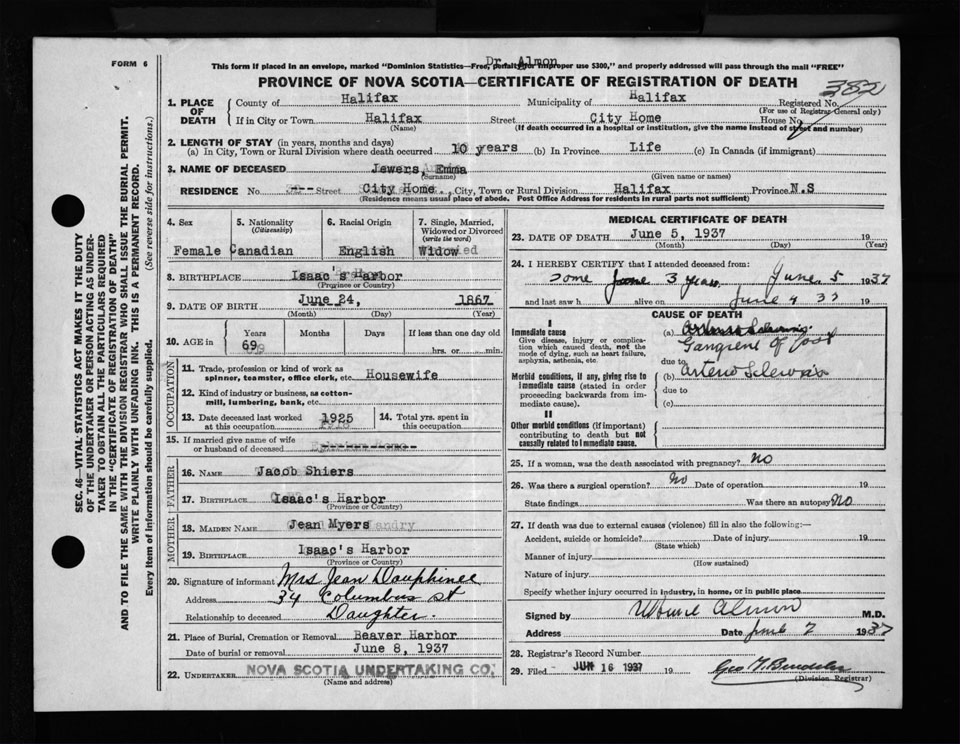 FORM 6
Dr. Almon
This form if placed in an envelope, marked "Dominion Statistics—Free, penalty for improper use $300," and properly addressed will pass through the mail "FREE"
PROVINCE OF NOVA SCOTIA—CERTIFICATE OF REGISTRATION OF DEATH
382
SEC. 46—VITAL STATISTICS ACT MAKES IT THE DUTY
OF THE UNDERTAKER OR PERSON ACTING AS UNDER-
TAKER TO OBTAIN ALL THE PARTICULARS REQUIRED
IN THE "CERTIFICATE OF REGISTRATION OF DEATH"
AND TO FILE THE SAME WITH THE DIVISION REGISTRAR WHO SHALL ISSUE THE BURIAL PERMIT.
WRITE PLAINLY WITH UNFADING INK. THIS IS A PERMANENT RECORD.
Every item of information should be carefully supplied. (See reverse side for instructions.)
1. PLACE OF DEATH
County of Halifax Municipality of Halifax Registered No.
(For use of Registrar General only)
If in City or Town Halifax Street City Home House No.
(Name) (If death occurred in a hospital or institution, give the name instead of street and number)
2. LENGTH OF STAY (in years, months and days)
(a) In City, Town or Rural Division where death occurred 10 years (b) In Province Life (c) In Canada (if immigrant)
3. NAME OF DECEASED Jewers, Emma
(Surname) (Given name or names)
RESIDENCE No. --- Street City Home , City, Town or Rural Division Halifax Province N.S
(Residence means usual place of abode. Post Office Address for residents in rural parts not sufficient)
4. Sex
Female
5. Nationality
(Citizenship)
Canadian
6. Racial Origin
English
7. Single, Married,
Widowed or Divorced
(write the word)
Widow
8. BIRTHPLACE Isaac's Harbor
(Province or Country)
9. DATE OF BIRTH June 24, 1867
(Month) (Day) (Year)
10. AGE in Years Months Days If less than one day old
69 hrs. or min.
OCCUPATION
11. Trade, profession or kind of work as
spinner, teamster, office clerk, etc. Housewife
12. Kind of industry or business, as cotton-
mill, lumbering, bank, etc.
13. Date deceased last worked
at this occupation 1925
14. Total yrs. spent in
this occupation
15. If married give name of wife
or husband of deceased
FATHER
16. NAME Jacob Shiers
17. BIRTHPLACE Isaac's Harbor
(Province or Country)
MOTHER
18. MAIDEN NAME Jean Myers
19. BIRTHPLACE Isaac's Harbor
(Province or Country)
20. Signature of informant Mrs Jean Dauphinee
Address 34 Columbus st
Relationship to deceased Daughter.
21. Place of Burial, Cremation or Removal Beaver Harbor
Date of burial or removal June 8, 1937
22. UNDERTAKER NOVA SCOTIA UNDERTAKING CO.
(Name and address)
MEDICAL CERTIFICATE OF DEATH
23. DATE OF DEATH June 5, 1937 19
(Month) (Day) (Year)
24. I HEREBY CERTIFY that I attended deceased from:
some 3 years June 5 1937
and last saw h alive on June 4 37 19
CAUSE OF DEATH
I
Immediate cause
Give disease, injury or complica-
tion which caused death, not the
mode of dying, such as heart failure,
asphyxia, asthenia, etc.
(a)
Gangrene of foot
due to
Morbid conditions, if any, giving rise to
immediate cause (stated in order
proceeding backwards from im-
mediate cause).
(b) Arterio Sclerosis
due to
(c)
II
Other morbid conditions (if important)
contributing to death but not
causally related to immediate cause.
25. If a woman, was the death associated with pregnancy? No
26. Was there a surgical operation? No Date of operation 19
State findings Was there an autopsy No
27. If death was due to external causes (violence) fill in also the following:—
Accident, suicide or homicide? Date of injury 19
(State which)
Manner of injury
(How sustained)
Nature of injury
Specify whether injury occurred in industry, in home, or in public place
Signed by Almon M.D.
Address Date June 7 1937
28. Registrar's Record Number
29. Filed JUN 16 1937 19
(Division Registrar)